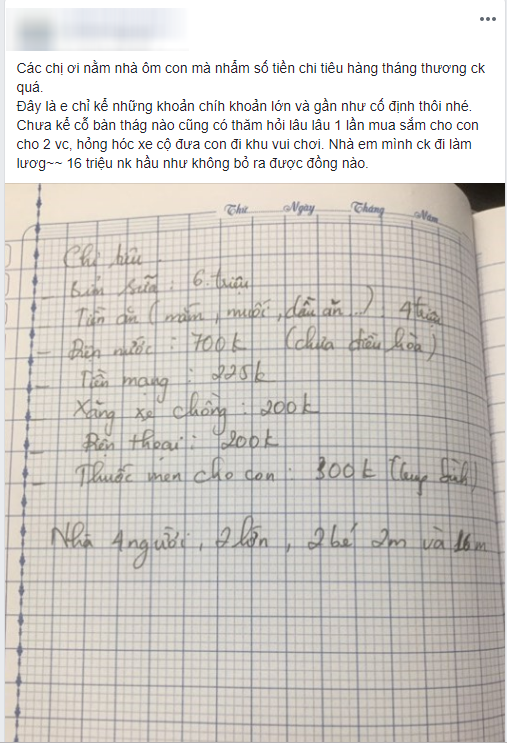 Các chị ơi nằm nhà ôm con mà nhẩm số tiền chi tiêu hàng tháng thương ck
quá.
Đây là e chỉ kể những khoản chíh khoản lớn và gần như cố định thôi nhé.
Chưa kể cỗ bàn thág nào cũng có thăm hỏi lâu lâu 1 lần mua sắm cho con
cho 2 vc, hỏng hóc xe cộ đưa con đi khu vui chơi. Nhà em mình ck đi làm
lươg~~ 16 triệu nk hầu như không bỏ ra được đồng nào.
Thứ Ngày Tháng Năm
Chi tiêu
- Bỉm sữa : 6 triệu
Tiền ăn (mắm, muối, dầu ăn...) : 4 triệu
- Điện nước : 700k (chưa điều hòa)
- Tiền mạng : 225k
- Xăng xe chồng : 200k
- Điện thoại : 200k
- Thuốc men cho con : 300k
Nhà 4 người, 2 lớn, 2 bé 2m và 16m